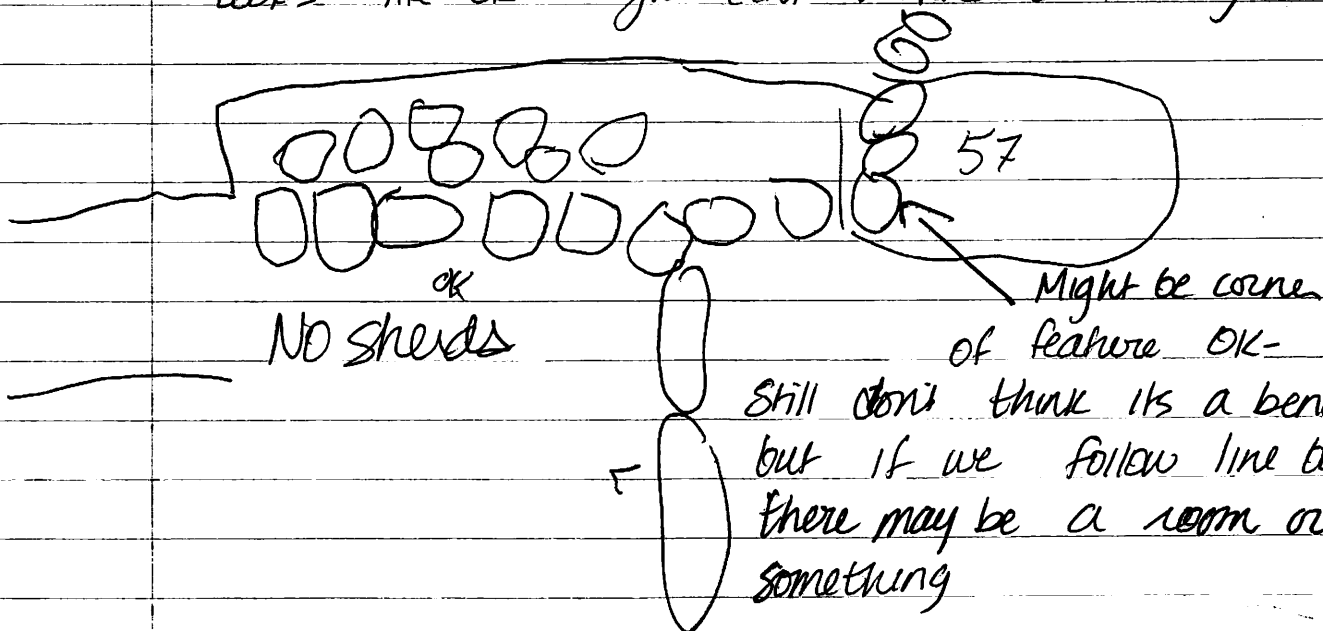 57
OK
No sherds
Might be corne
of feature OK-
Still don't think its a ben
but if we follow line b
there may be a room or
something